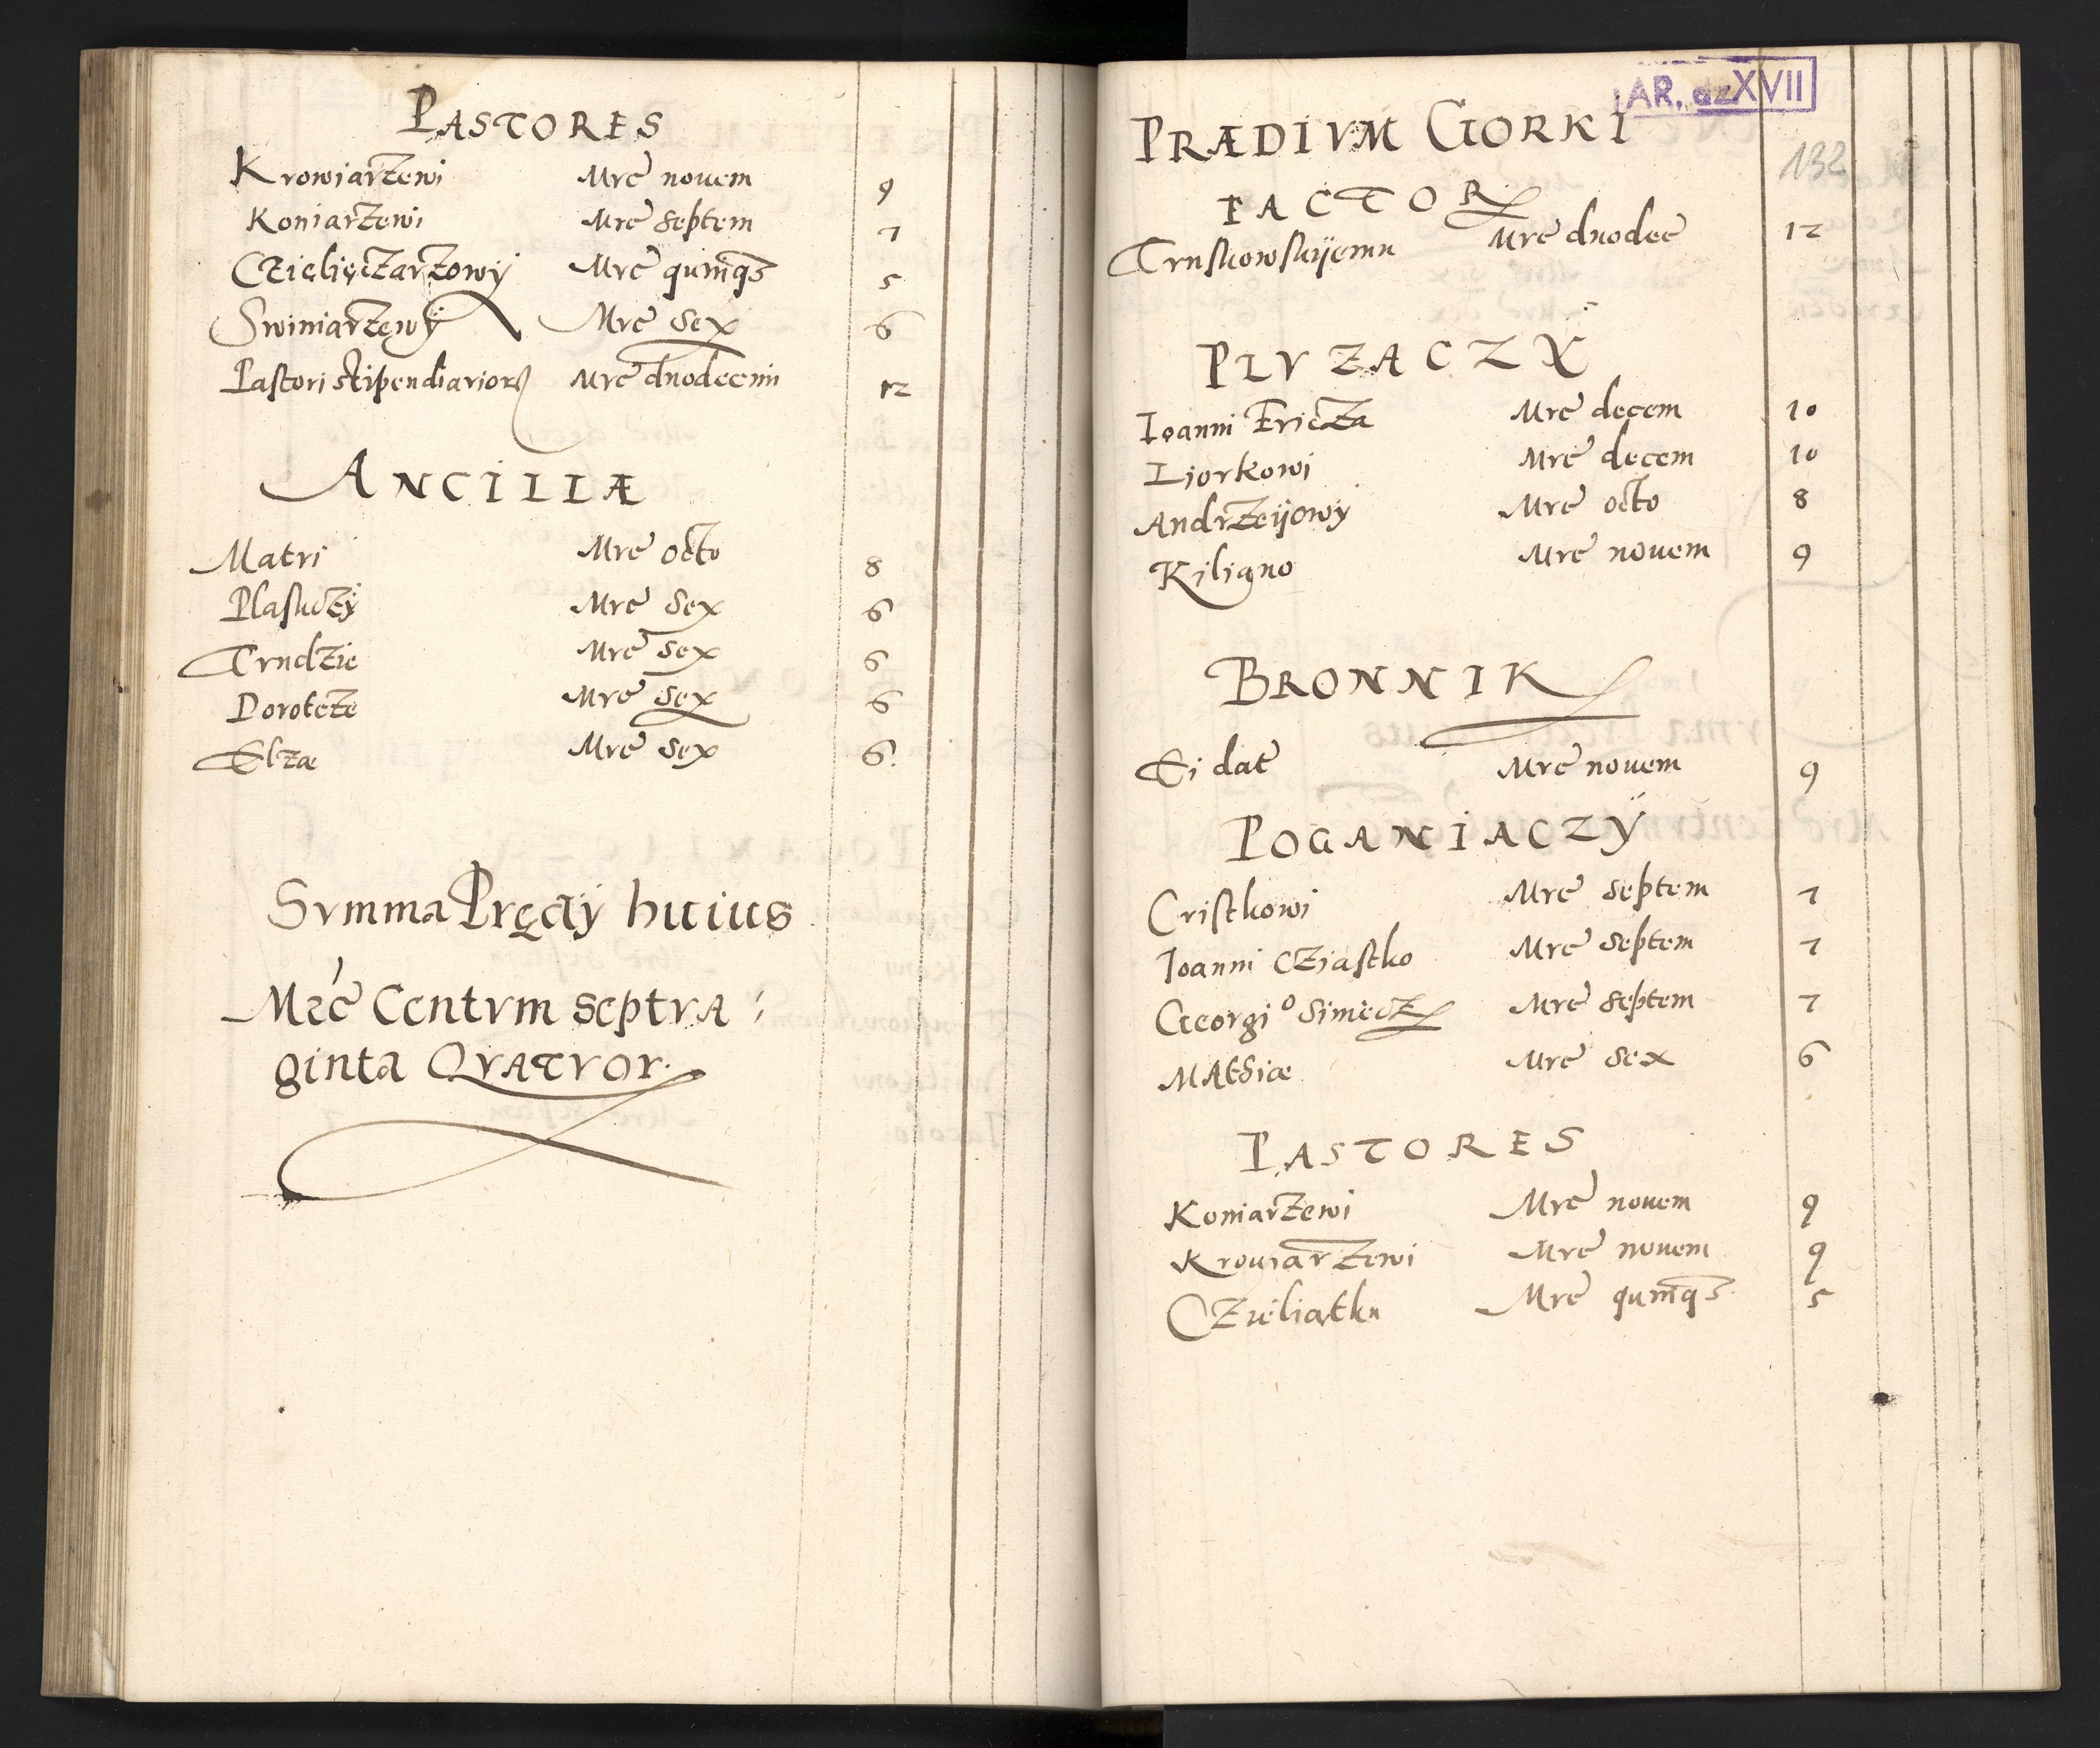 PASTORES
Krowiarzewi Mrc novem 9
Koniarzewi Mrc septem 7
Czielięczarzowÿ Mrc quinqȝ 5
Swiniarzewÿ Mrc sex 6
Pastori stipendiarioꝝ Mrc duodecim 12
ANCILLÆ
Matri Mrc octo 8
Mrc sex 6
Trudzie Mrc sex 6
Dorotcze Mrc sex 6
Elzæ Mrc sex 6.
Svmma Prędÿ huius
Mrc Centvm septva:
ginta QVATVOR.
AR. dz XVII
PRÆDIVM GORKI
132
FACTOR
Truskowskÿemu Mrc duodec 12
PLVZACZY
Ioanni Fricza Mrc decem 10
Liorkowi Mrc decem 10
Andrzeÿowÿ Mrc octo 8
Kiliano Mrc novem 9
BRONNIK
Ei dat Mrc novem 9
POGANIACZŸ
Cristkowi Mrc septem 7
Ioanni Cziastko Mrc septem 7
Georgio Simecz Mrc septem 7
Matsiæ Mrc sex 6
PASTORES
Koniarzewi Mrc novem 9
Krowiarzewi Mrc novem 9
Czieliątku Mrc quinqȝ 5